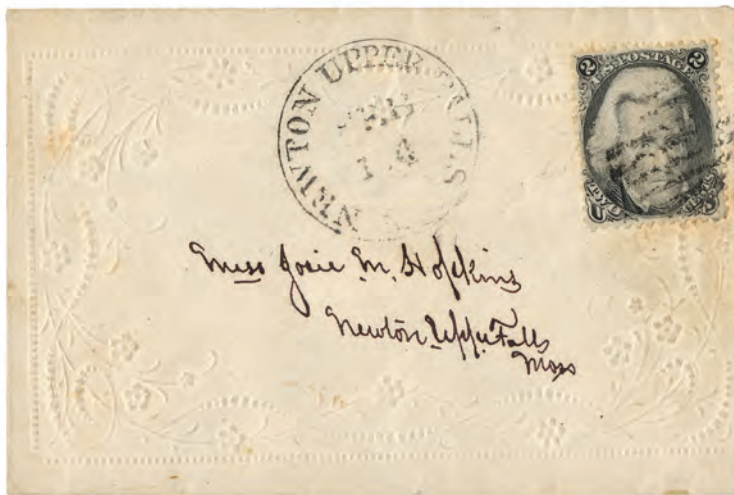 NEWTON UPPER FALLS
14
U.S. POSTAGE
2 2
Miss Josie M. Hopkins
Newton Upper Falls
Mass